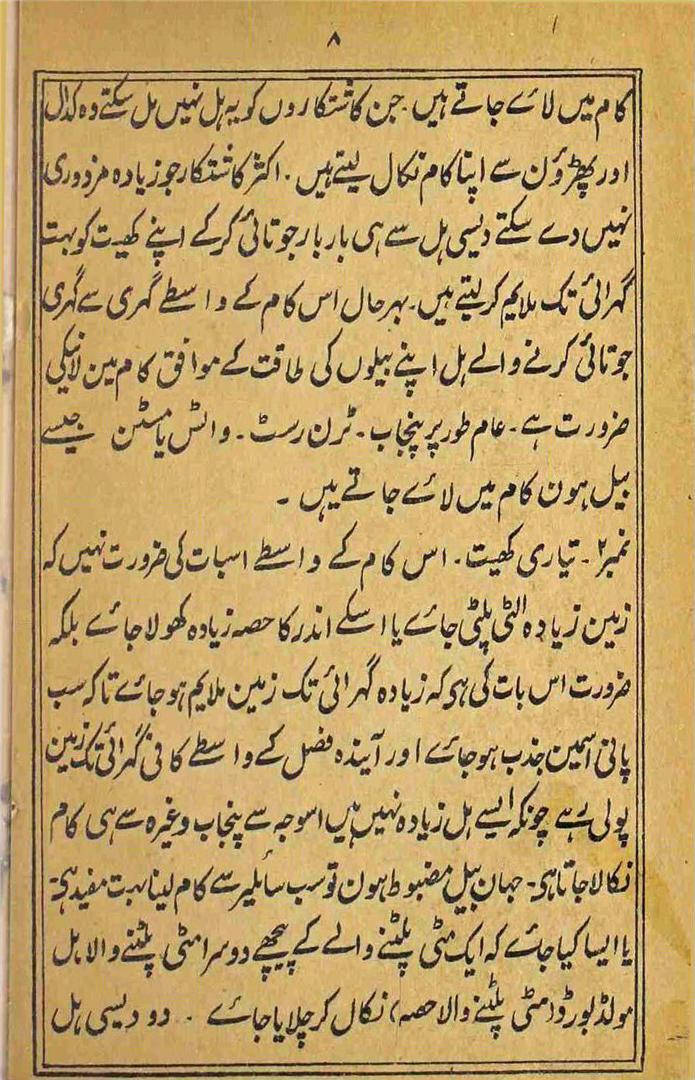 ۸
کام میں لائے جاتے ہیں۔ جن کاشتکاروں کو یہ ہل نہیں مل سکتے وہ کدال
اور پھڑؤن سے اپنا کام نکال لیتے ہیں۔ اکثر کاشتکار جو زیادہ مزدوری
نہیں دے سکتے دیسی ہل سے ہی بار بار جوتائی کر کے اپنے کھیت کو بہت
گہرائی تک ملایم کر لیتے ہیں۔ بہر حال اس کام کے واسطے گہری سے گہری
جوتائی کرنے والے ہل اپنے بیلوں کی طاقت کے موافق کام مین لانیکی
ضرورت ہے۔ عام طور پر پنجاب۔ ٹرن رسٹ۔ واٹس یا مسٹن جیسے
بیل ہون کام میں لائے جاتے ہیں۔
نمبر ۲۔ تیاری کھیت۔ اس کام کے واسطے اسبات کی ضرورت نہیں کہ
زمین زیادہ الٹی پلٹی جائے یا اسکے اندر کا حصہ زیادہ کھولا جائے بلکہ
ضرورت اس بات کی ہی کہ زیادہ گہرائی تک زمین ملایم ہو جائے تاکہ سب
پانی اسمین جذب ہو جائے اور آیندہ فصل کے واسطے کافی گہرائی تک زمین
پولی رہے چونکہ ایسے ہل زیادہ نہیں ہیں اسوجہ سے پنجاب وغیرہ سے ہی کام
نکالا جاتا ہی۔ جہان بیل مضبوط ہون تو سب سائلیر سے کام لینا بہت مفید ہی۔
یا ایسا کیا جائے کہ ایک مٹی پلٹنے والے کے پیچھے دوسرا مٹی پلٹنے والا ہل
مولڈ بورڈ (مٹی پلٹنے والا حصہ) نکال کر چلایا جائے۔ دو دیسی ہل